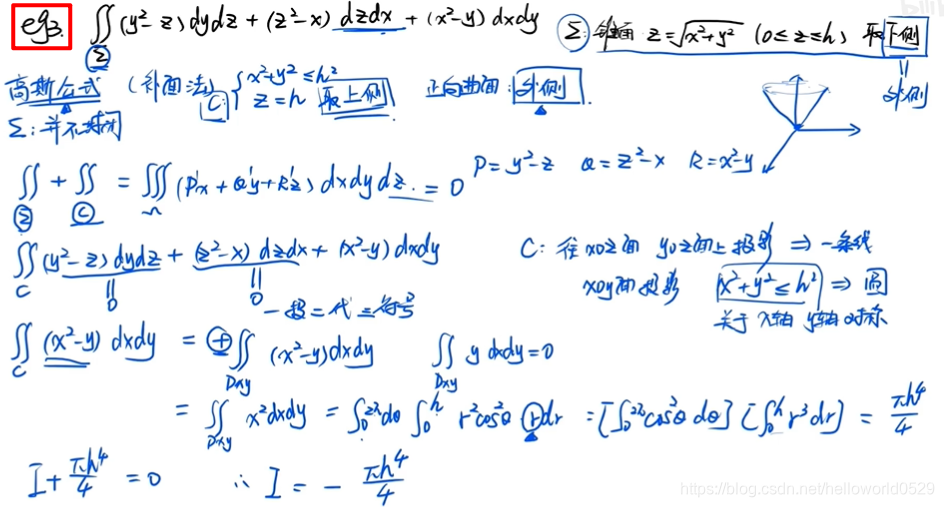 eg3. ∬Σ (y²-z) dydz + (z²-x) dzdx + (x²-y) dxdy Σ: 锥面 z=√(x²+y²) (0≤z≤h) 取下侧
= 外侧
高斯公式 (补面法) C: { x²+y²≤h² z=h 取上侧 正向曲面: 外侧.
Σ: 并不封闭
∬Σ + ∬C = ∭Ω (P'x + Q'y + R'z) dxdydz = 0 P=y²-z Q=z²-x R=x²-y
∬C (y²-z) dydz + (z²-x) dzdx + (x²-y) dxdy C: 往xoz面 yoz面上投影 ⇒ 一条线
= 0 = 0 xoy面投影 x²+y²≤h² ⇒ 圆
一投二代三符号 关于x轴 y轴对称
∬C (x²-y) dxdy = ⊕∬Dxy (x²-y) dxdy ∬Dxy y dxdy = 0
= ∬Dxy x² dxdy = ∫₀^2π dθ ∫₀^h r²cos²θ r dr = [∫₀^2π cos²θ dθ] [∫₀^h r³ dr] = πh⁴/4
I + πh⁴/4 = 0 ∴ I = - πh⁴/4
https://blog.csdn.net/helloworld0529